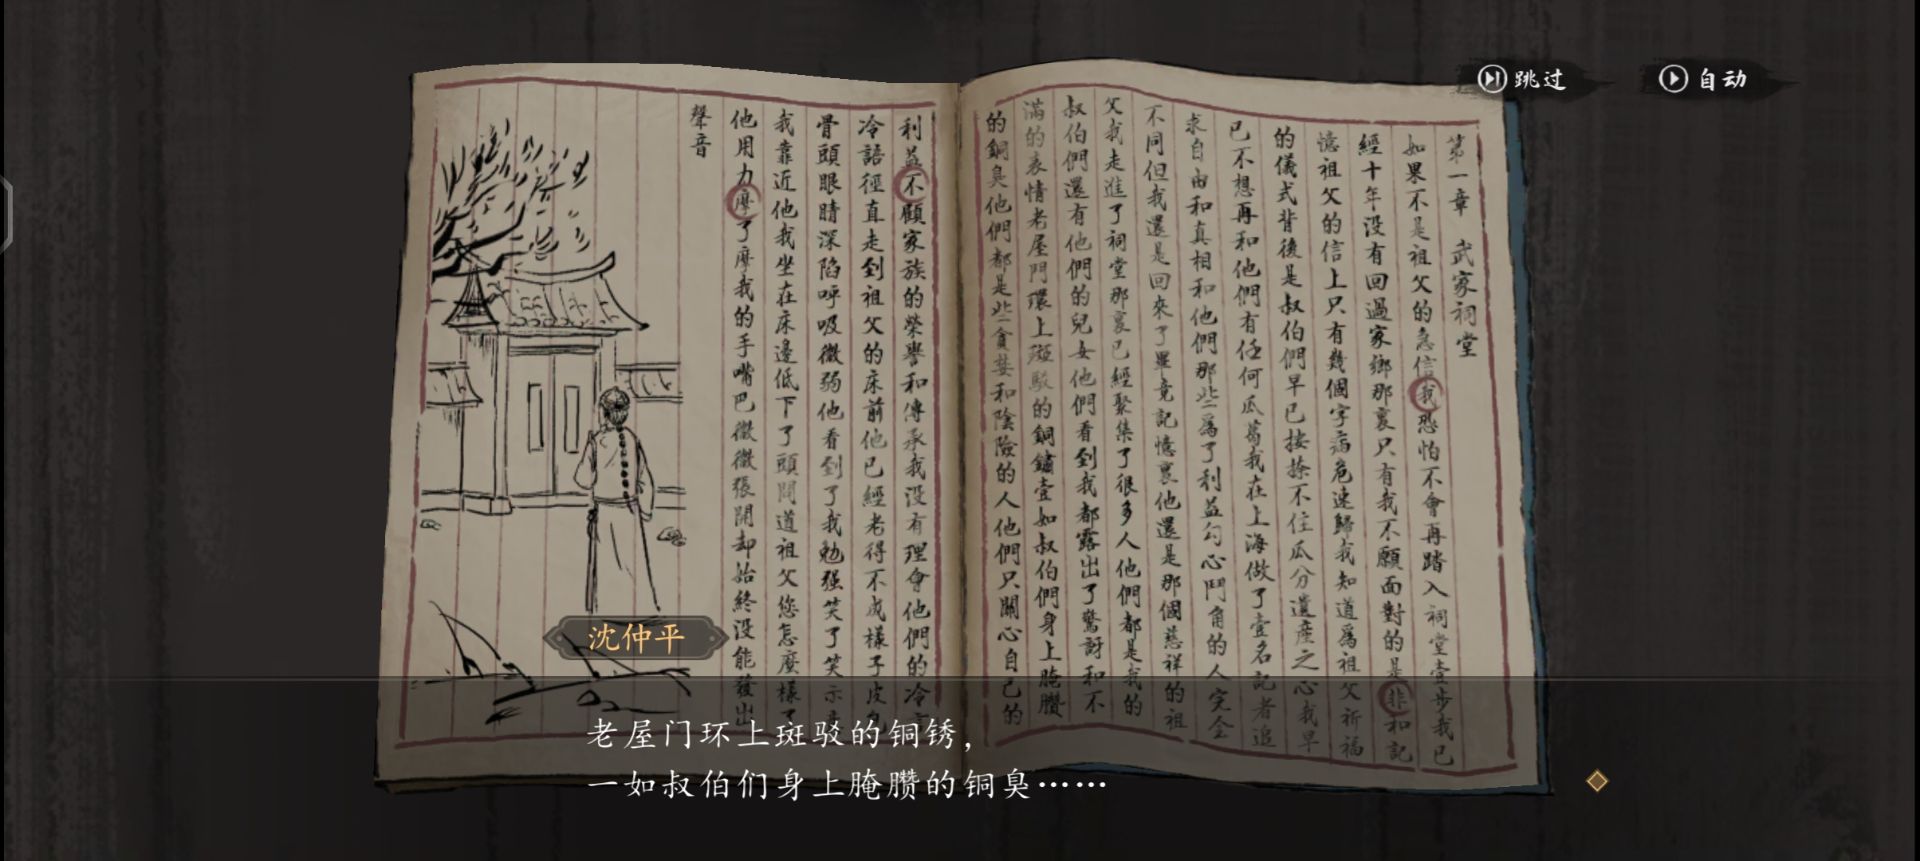 跳过
自动
第一章 武家祠堂
如果不是祖父的急信我恐怕不會再踏入祠堂壹步我已
經十年没有回過家鄉那裏只有我不願面對的是非和記
憶祖父的信上只有幾個字病危速歸我知道爲祖父祈福
的儀式背後是叔伯們早已按捺不住瓜分遺産之心我早
已不想再和他們有任何瓜葛我在上海做了壹名記者追
求自由和真相和他們那些爲了利益勾心鬥角的人完全
不同但我還是回來了畢竟記憶裏他還是那個慈祥的祖
父我走進了祠堂那裏已經聚集了很多人他們都是我的
叔伯們還有他們的兒女他們看到我都露出了驚訝和不
滿的表情老屋門環上斑駁的銅鏽壹如叔伯們身上腌臢
的銅臭他們都是些貪婪和陰險的人他們只關心自己的
利益不顧家族的榮譽和傳承我没有理會他們的冷言
冷語徑直走到祖父的床前他已經老得不成樣子皮包
骨頭眼睛深陷呼吸微弱他看到了我勉强笑了笑示意
我靠近他我坐在床邊低下了頭問道祖父您怎麽樣了
他用力摩了摩我的手嘴巴微微張開却始終没能發出
聲音
沈仲平
老屋门环上斑驳的铜锈，
一如叔伯们身上腌臜的铜臭……